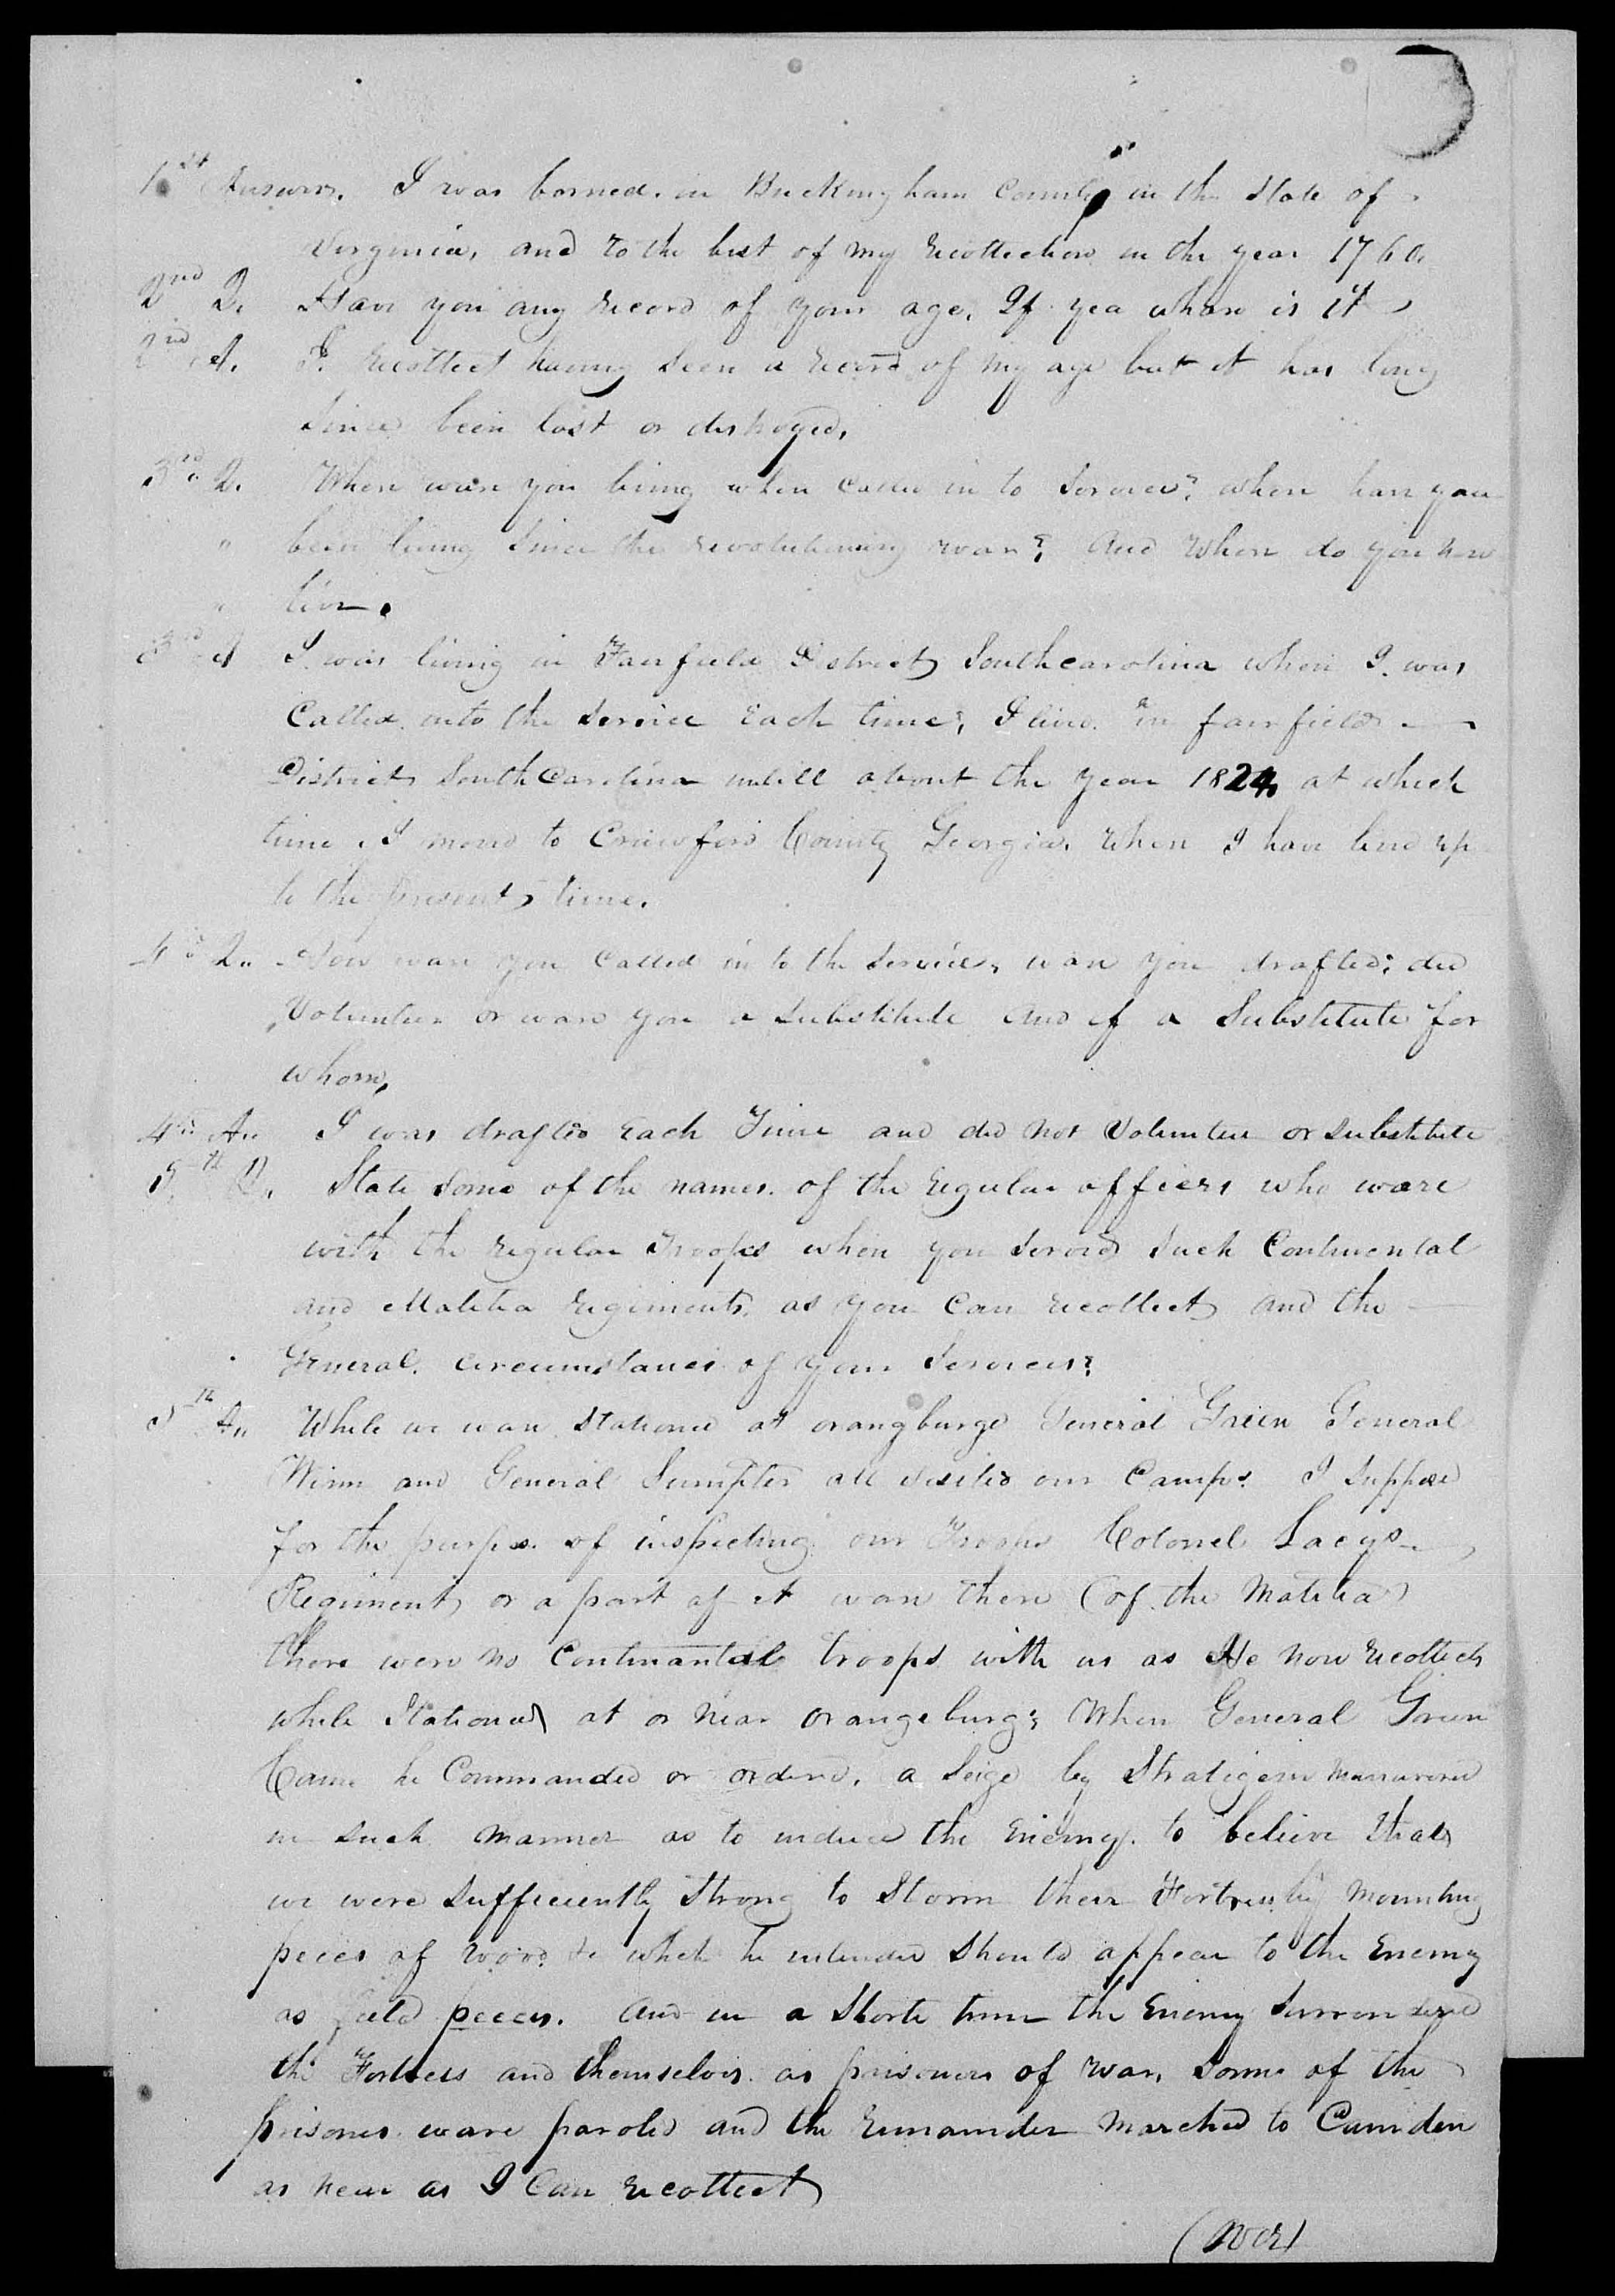 1st Answer. I was borned. in Buckingham County in the State of
Virginia, and to the best of my recollection in the year 1760.
2nd Q. Have you any record of your age. If yea whare is it
2nd A. I recollect having seen a record of my age but it has long
since been lost or destroyed.
3rd Q. Where ware you living when called in to Service? where have you
" been living since the revolutionary war? And where do you now
" live.
3rd A I was living in Fairfield District Southcarolina when I was
Called into the Service each time; I live. in fairfield
District South Carolina untill about the year 1824, at which
time. I moved to Crawford County Georgia, where I have lived up
to the present time.
4th Q.. How ware you Called in to the Service, ware you drafted; did
Volunteer or ware you a substitute and if a Substitute for
whom,
4th A.. I was drafted each Time and did not Volunteer or substitute
5th Q.. State some of the names. of the regular officers who ware
with the regular Troops when you served such Continental
and Malitia regiments, as you can recollect and the
General. circumstances of your Services?
5th A.. While we ware stationed at orangburge General Green General
Winn and General Sumpter all visited our Camps. I suppose
for the purpos. of inspecting our Troops Colonel Lacys
Regiment or a part of it ware there (of the Malitia)
there were no Continantal troops with us as He now recollects
while stationed at or near orangeburg; When General Green
Came he Commanded or orderd, a seige by Stratigem manuvered
in such manner as to induce the Enemy. to believe that
we were sufficiently strong to Storm their Fortress, by mounting
peces of wood. &c which he intended should appear to the Enemy
as feild peces. And in a Shorte time the Enemy surrendered
the Fortress and themselves. as prisoners of war, some of the
prisoners ware paroled and the remainder marched to Camden
as near as I Can recollect
(over)